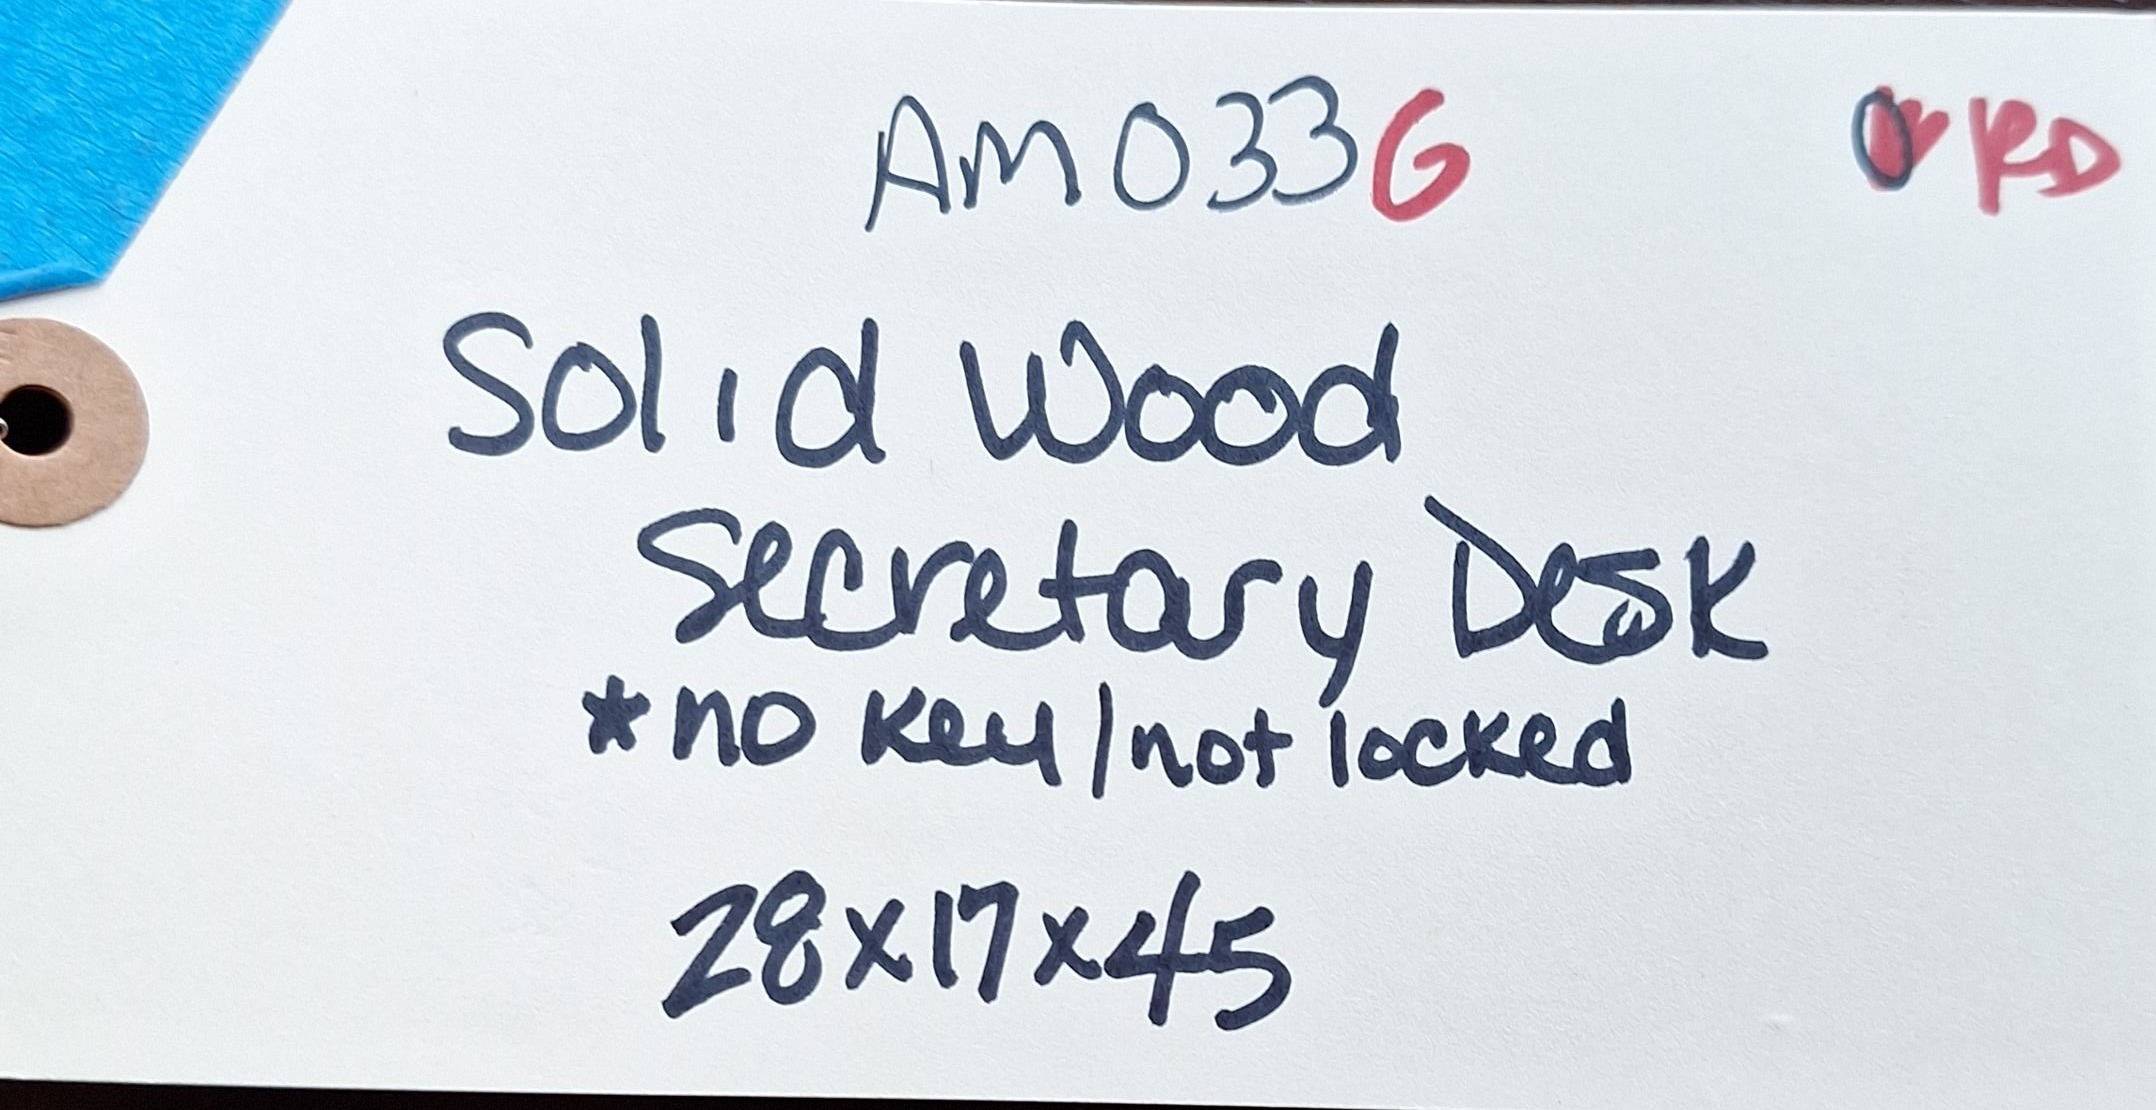 AM033G
RD
Solid Wood
Secretary Desk
*no key/not locked
28x17x45